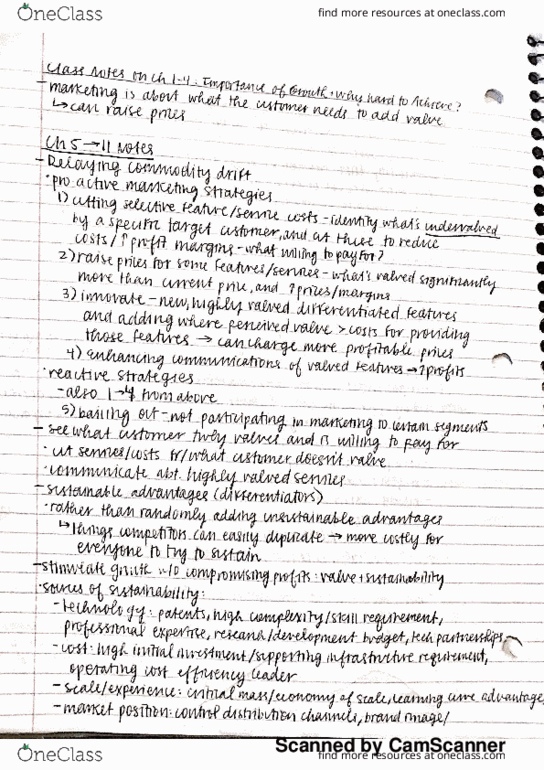 OneClass
find more resources at oneclass.com
Class Notes on Ch 1-4: Importance of Growth + Why hard to Achieve?
- marketing is about what the customer needs to add value
↳ can raise prices
Ch 5 → 11 Notes
- Delaying commodity drift
· pro active marketing strategies
1) cutting selective feature/service costs - identify what's undervalued
by a specific target customer, and cut those to reduce
costs/↑ profit margins - what willing to pay for?
2) raise prices for some features/services - what's valued significantly
more than current price, and ↑ prices/margins
3) innovate - new, highly valued differentiated features
and adding where perceived value > costs for providing
those features → can charge more profitable prices
4) enhancing communications of valued features → ↑ profits
· reactive strategies
- also 1→4 from above
5) bailing out - not participating in marketing to certain segments
- see what customer truly values and is willing to pay for
· cut services/costs for what customer doesn't value
· communicate abt. highly valued services
- sustainable advantages (differentiators)
· rather than randomly adding unsustainable advantages
↳ things competitors can easily duplicate → more costly for
everyone to try to sustain
- stimulate growth w/o compromising profits: value + sustainability
· sources of sustainability:
- technology: patents, high complexity/skill requirement,
professional expertise, research/development budget, tech partnerships
- cost: high initial investment/supporting infrastructure requirement,
operating cost efficiency leader
- scale/experience: critical mass/economy of scale, learning curve advantage,
- market position: control distribution channels, brand image/
Scanned by CamScanner
OneClass
find more resources at oneclass.com